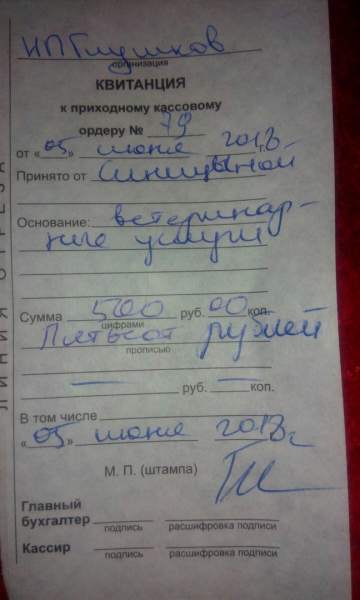 ИП Глушков
организация
КВИТАНЦИЯ
к приходному кассовому
ордеру № 79
от «05» июня 2013 г.
Принято от Синицыной
Основание: ветеринар-
ные услуги
Сумма 500 руб. 00 коп.
цифрами
Пятьсот рублей
прописью
— руб. — коп.
В том числе
«05» июня 2013 г.
М. П. (штампа)
Главный
бухгалтер
подпись расшифровка подписи
Кассир
подпись расшифровка подписи
ЛИНИЯ ОТРЕЗА